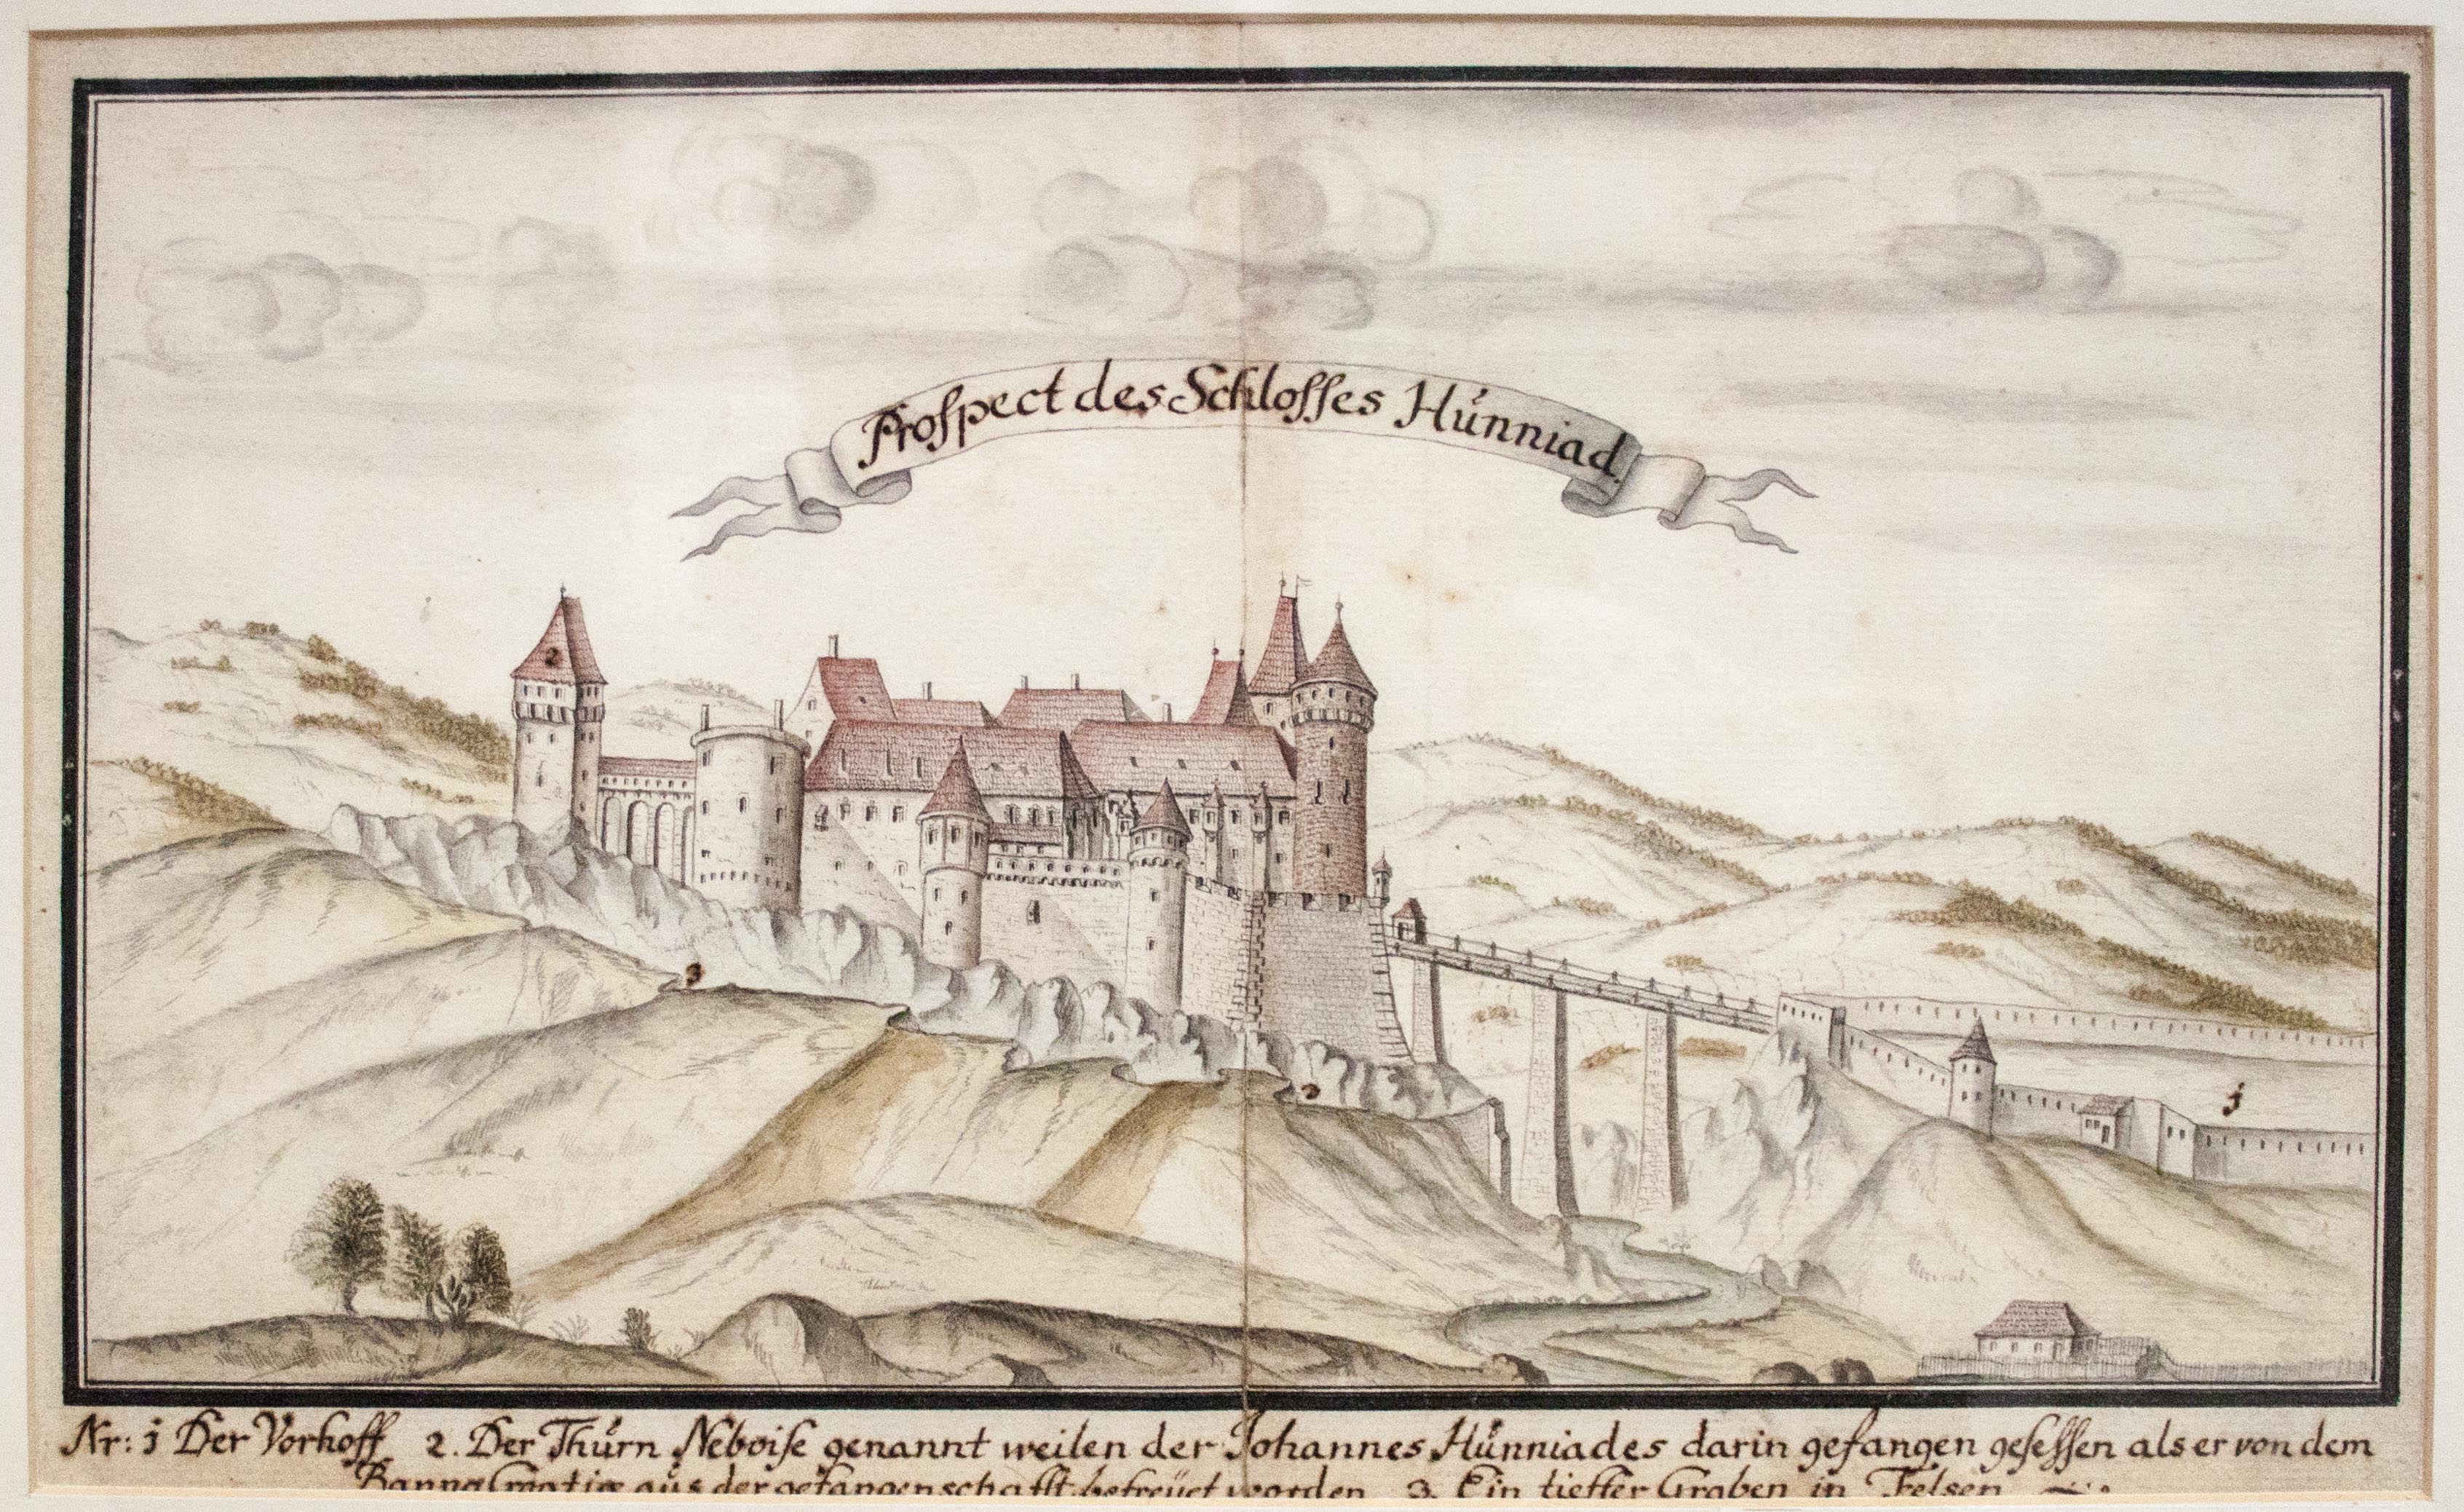 Prospect des Schlosses Hünniad
2
3
3
1
Nr: 1 Der Vorhoff 2. Der Thurn Neboise genannt weilen der Johannes Hünniades darin gefangen gesessen als er von dem
aus der gefangenschafft befreÿet worden 3. Ein tieffer Graben in Felsen